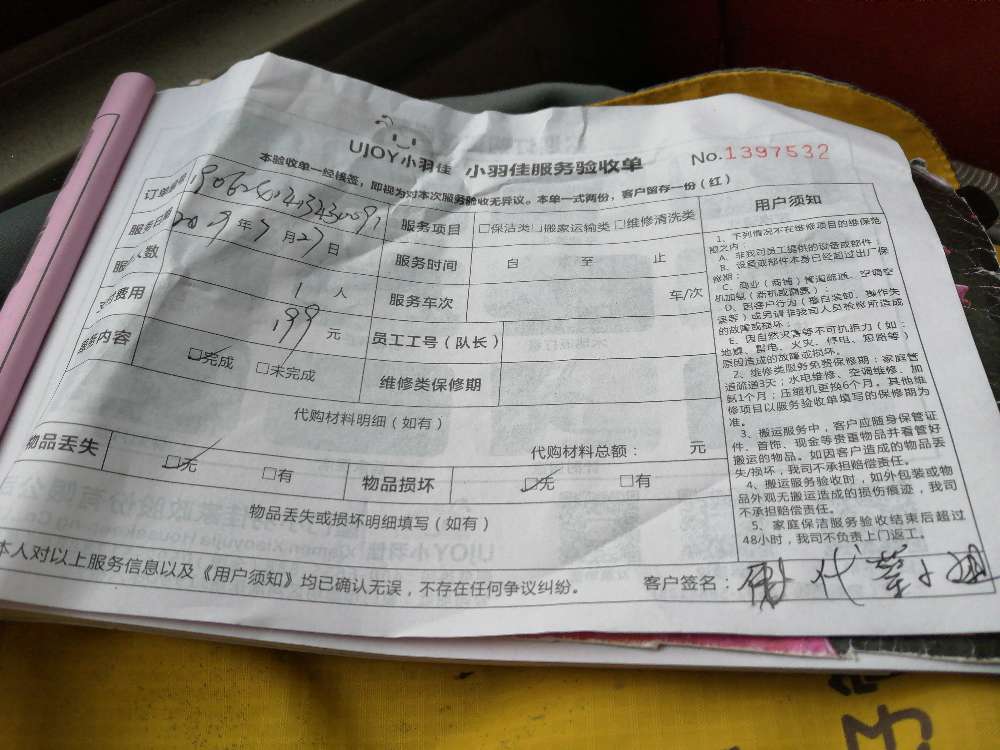 UJOY小羽佳 小羽佳服务验收单 No.1397532
本验收单一经核签，即视为对本次服务验收无异议。本单一式两份，客户留存一份（红）
服务项目 □保洁类 □搬家运输类 □维修清洗类
2019年7月27日 服务时间 自 至 止
人数 1人 服务车次 车/次
费用 199元 员工工号（队长）
内容 □完成 □未完成 维修类保修期
代购材料明细（如有）
代购材料总额： 元
物品丢失 □无 □有 物品损坏 □无 □有
物品丢失或损坏明细填写（如有）
本人对以上服务信息以及《用户须知》均已确认无误，不存在任何争议纠纷。 客户签名：
用户须知
1、下列情况不在维修项目的维保范
围之内：
A、非我司员工提供的设备或部件
B、设备或部件本身已经超过出厂保
修期；
C、商业（商铺）管道疏通、空调空
D、因客户行为（擅自装卸、操作失
误等）或另请非我司人员检修所造成
的故障或损坏；
E、因自然灾害等不可机拒力（如：
地震、雷电、火灾、停电、短路等）
原因造成的故障或损坏。
2、维修类服务免费保修期：家庭管
道疏通3天；水电维修、空调维修、加
氨1个月；压缩机更换6个月。其他维
修项目以服务验收单填写的保修期为
准。
3、搬运服务中，客户应随身保管证
件、首饰、现金等贵重物品并看管好
搬运的物品。如因客户造成的物品丢
失/损坏，我司不承担赔偿责任。
4、搬运服务验收时，如外包装或物
品外观无搬运造成的损伤痕迹，我司
不承担赔偿责任。
5、家庭保洁服务验收结束后超过
48小时，我司不负责上门返工。